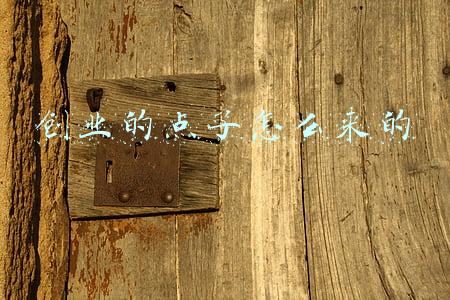 创业的点子怎么来的